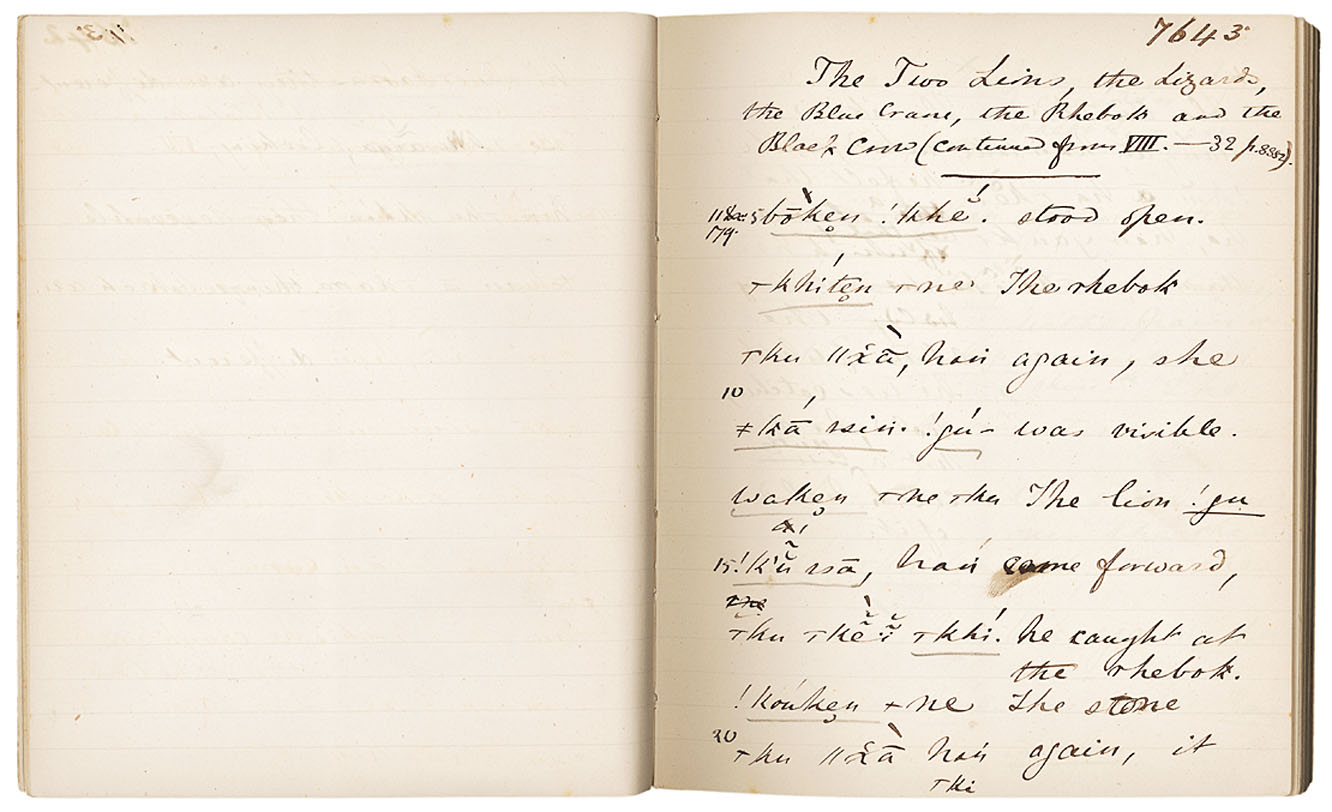 7643
The Two Lions, the Lizards,
the Blue Crane, the Rhebok and the
Black Crow (continued from VIII. — 32 p.
bōken !khé. stood open.
179.
⊤khíten ⊤ne The rhebok
⊤ku ǁx̌ā̀, haṅ again, she
10
ǂká ssin. !gú- was visible.
waken ⊤ne ⊤ku The lion !gu
15 ssā, haṅ come forward,
⊤ku ⊤khí. he caught at
the rhebok.
!kóuken ⊤ne The stone
20
⊤ku ǁx̌ā̀ haṅ again, it
⊤ki